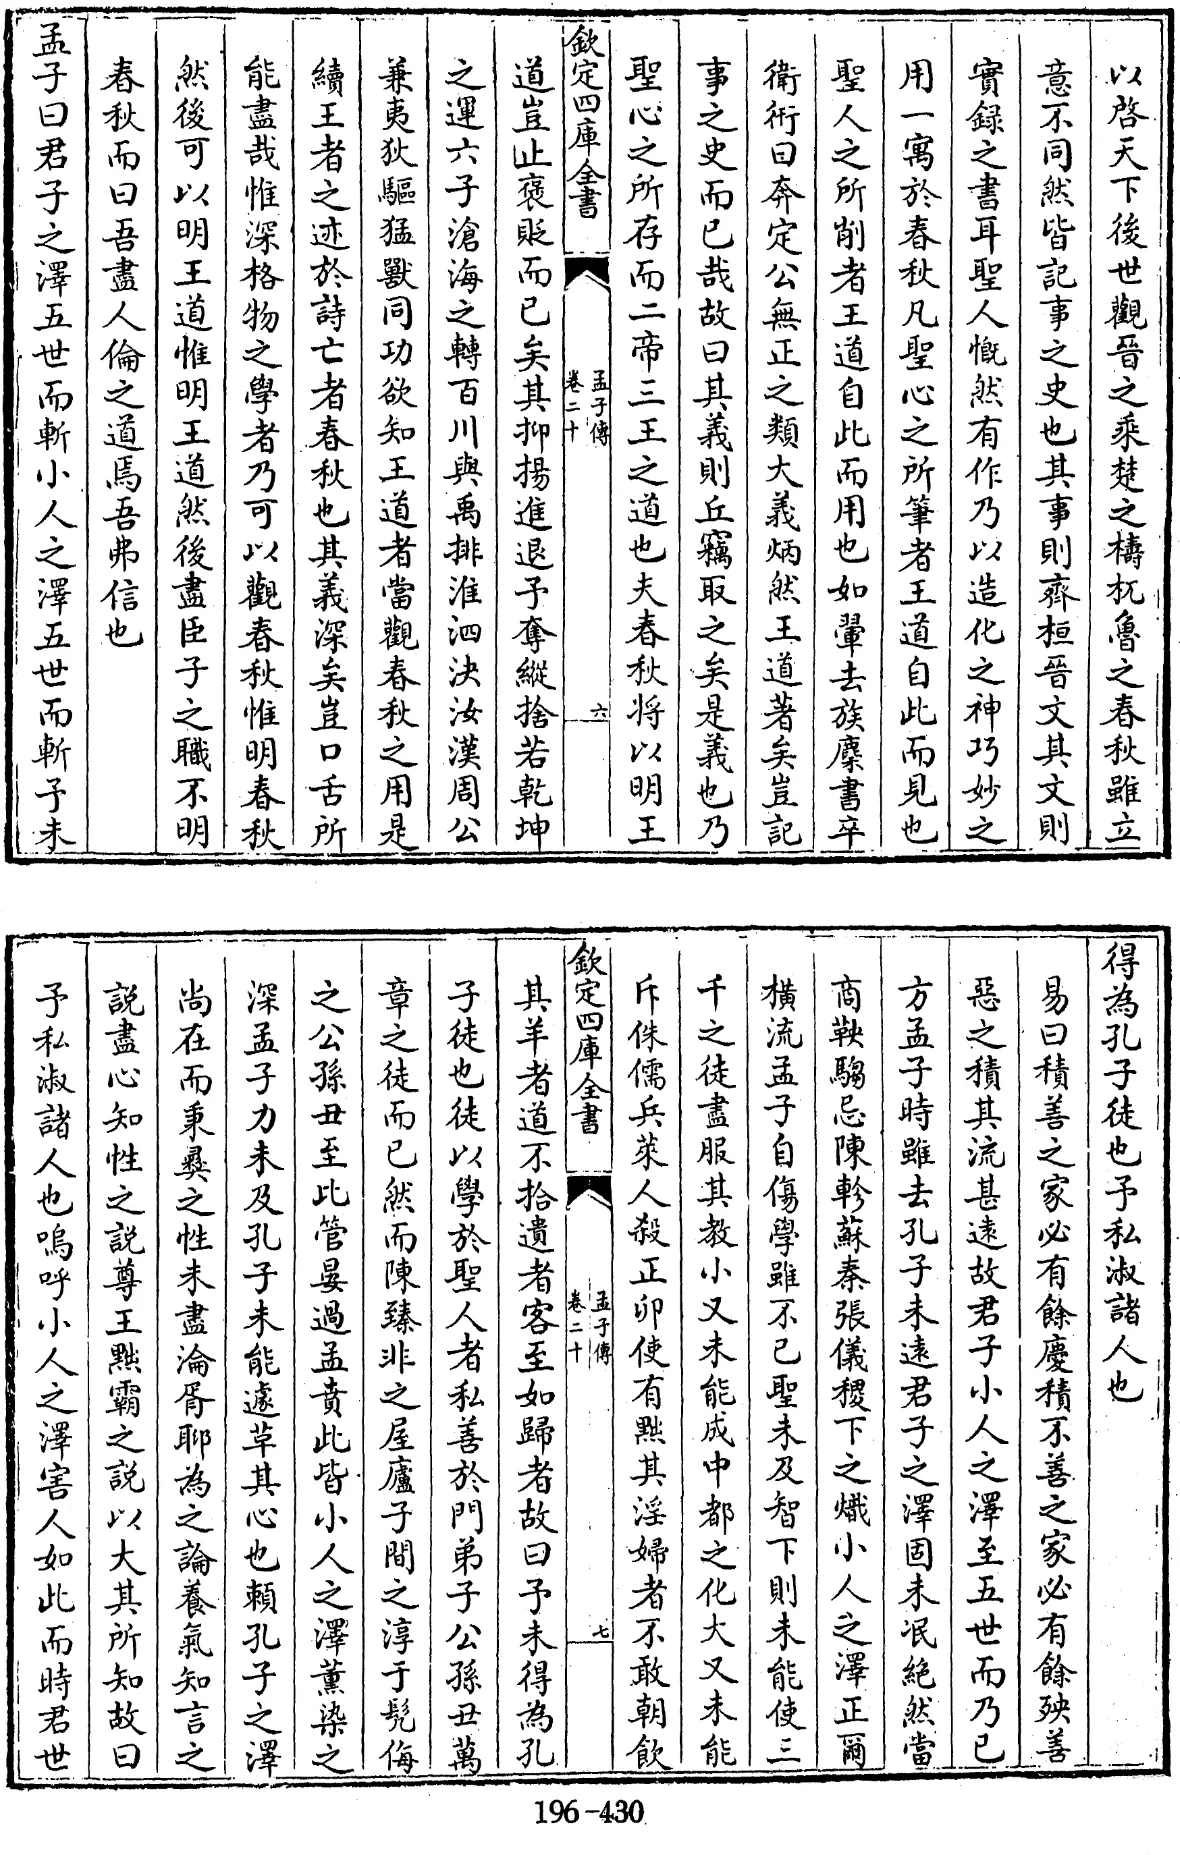 以啓天下後世觀晉之乘楚之檮杌魯之春秋雖立
意不同然皆記事之史也其事則齊桓晉文其文則
實録之書耳聖人慨然有作乃以造化之神巧妙之
用一寓於春秋凡聖心之所筆者王道自此而見也
聖人之所削者王道自此而用也如翬去族麇書卒
衛術曰奔定公無正之類大義炳然王道著矣豈記
事之史而已哉故曰其義則丘竊取之矣是義也乃
聖心之所存而二帝三王之道也夫春秋将以明王
欽定四庫全書
孟子傳
卷二十
六
道豈止襃貶而已矣其抑揚進退予奪縱捨若乾坤
之運六子滄海之轉百川與禹排淮泗決汝漢周公
兼夷狄驅猛獸同功欲知王道者當觀春秋之用是
續王者之迹於詩亡者春秋也其義深矣豈口舌所
能盡哉惟深格物之學者乃可以觀春秋惟明春秋
然後可以明王道惟明王道然後盡臣子之職不明
春秋而曰吾盡人倫之道焉吾弗信也
孟子曰君子之澤五世而斬小人之澤五世而斬予未
得為孔子徒也予私淑諸人也
易曰積善之家必有餘慶積不善之家必有餘殃善
惡之積其流甚遠故君子小人之澤至五世而乃已
方孟子時雖去孔子未遠君子之澤固未泯絶然當
商鞅騶忌陳軫蘇秦張儀稷下之熾小人之澤正爾
橫流孟子自傷學雖不已聖未及智下則未能使三
千之徒盡服其教小又未能成中都之化大又未能
斥侏儒兵萊人殺正卯使有㸃其淫婦者不敢朝飲
欽定四庫全書
孟子傳
卷二十
七
其羊者道不拾遺者客至如歸者故曰予未得為孔
子徒也徒以學於聖人者私善於門弟子公孫丑萬
章之徒而已然而陳臻非之屋廬子間之淳于髠侮
之公孫丑至此管晏過孟賁此皆小人之澤薰染之
深孟子力未及孔子未能遽革其心也頼孔子之澤
尚在而秉彞之性未盡淪胥聊為之論養氣知言之
説盡心知性之説尊王黜霸之説以大其所知故曰
予私淑諸人也嗚呼小人之澤害人如此而時君世
196-430